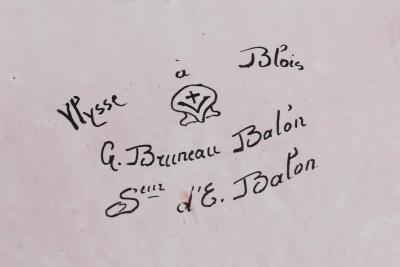 Ulysse à Blois
G. Bruneau Balon
Seur d'E. Balon